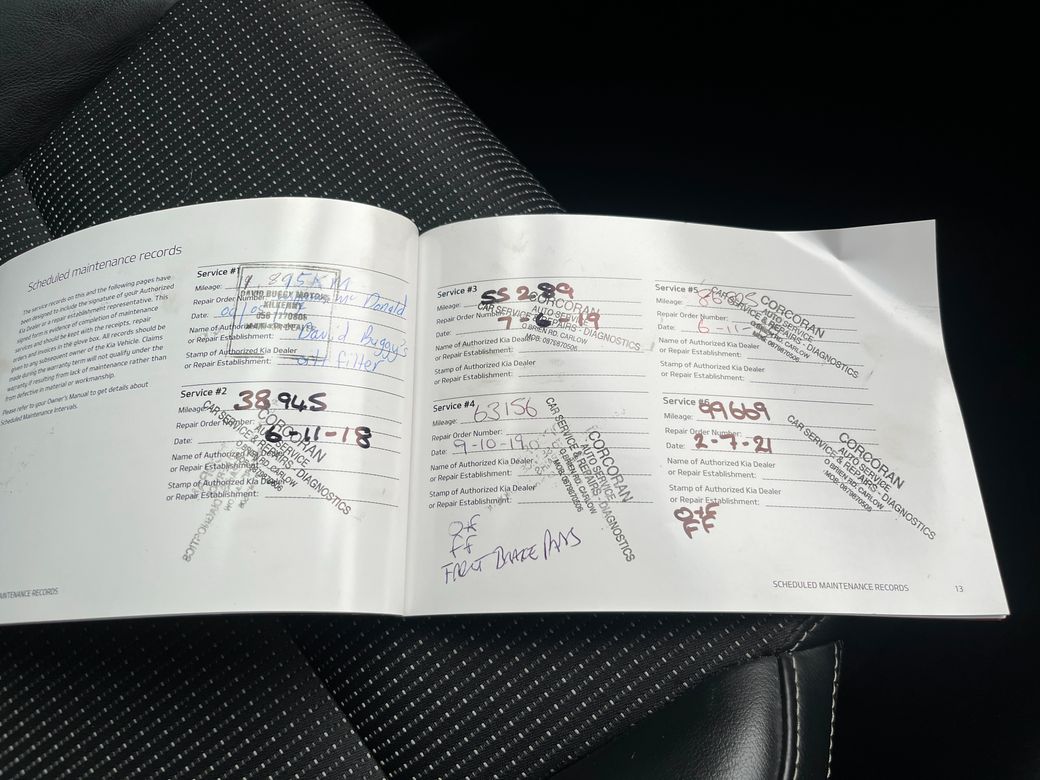 Scheduled maintenance records
The service records on this and the following pages have
been designed to include the signature of your Authorized
Kia Dealer or a repair establishment representative. This
signed form is evidence of completion of maintenance
services and should be kept with the receipts, repair
orders and invoices in the glove box. All records should be
given to any subsequent owner of the Kia Vehicle. Claims
made during the warranty term will not qualify under the
warranty, if resulting from lack of maintenance rather than
from defective in material or workmanship.
Please refer to your Owner's Manual to get details about
Scheduled Maintenance Intervals.
MAINTENANCE RECORDS
Service #1
Mileage: 895KM
Repair Order Number: Mc Donald
Date:
Name of Authorized Kia Dealer
or Repair Establishment: David Buggy's
Stamp of Authorized Kia Dealer
or Repair Establishment: oil filter
DAVID BUGGY MOTORS
KILKENNY
056 7770805
MAIN KIA DEALER
Service #2
Mileage: 38945
Repair Order Number:
Date: 6-11-18
Name of Authorized Kia Dealer
or Repair Establishment:
Stamp of Authorized Kia Dealer
or Repair Establishment:
CORCORAN
AUTO SERVICE
CAR SERVICE & REPAIRS - DIAGNOSTICS
Service #3
Mileage: 55289
Repair Order Number:
Date: 7-6-19
Name of Authorized Kia Dealer
or Repair Establishment:
Stamp of Authorized Kia Dealer
or Repair Establishment:
CORCORAN
AUTO SERVICE
CAR SERVICE & REPAIRS - DIAGNOSTICS
O'BRIEN RD. CARLOW
MOB: 0876870506
Service #4
Mileage: 63156
Repair Order Number:
Date: 9-10-19
Name of Authorized Kia Dealer
or Repair Establishment:
Stamp of Authorized Kia Dealer
or Repair Establishment:
CORCORAN
AUTO SERVICE
CAR SERVICE & REPAIRS - DIAGNOSTICS
O'BRIEN RD. CARLOW
MOB: 0876870506
O+F
FF
FRONT BRAKE PADS
Service #5
Mileage:
Repair Order Number:
Date: 6-11-
Name of Authorized Kia Dealer
or Repair Establishment:
Stamp of Authorized Kia Dealer
or Repair Establishment:
CORCORAN
AUTO SERVICE
CAR SERVICE & REPAIRS - DIAGNOSTICS
O'BRIEN RD. CARLOW
MOB: 0876870506
Service #6
Mileage: 99669
Repair Order Number:
Date: 2-7-21
Name of Authorized Kia Dealer
or Repair Establishment:
Stamp of Authorized Kia Dealer
or Repair Establishment:
CORCORAN
AUTO SERVICE
CAR SERVICE & REPAIRS - DIAGNOSTICS
O'BRIEN RD. CARLOW
MOB: 0876870506
O+F
FF
SCHEDULED MAINTENANCE RECORDS 13